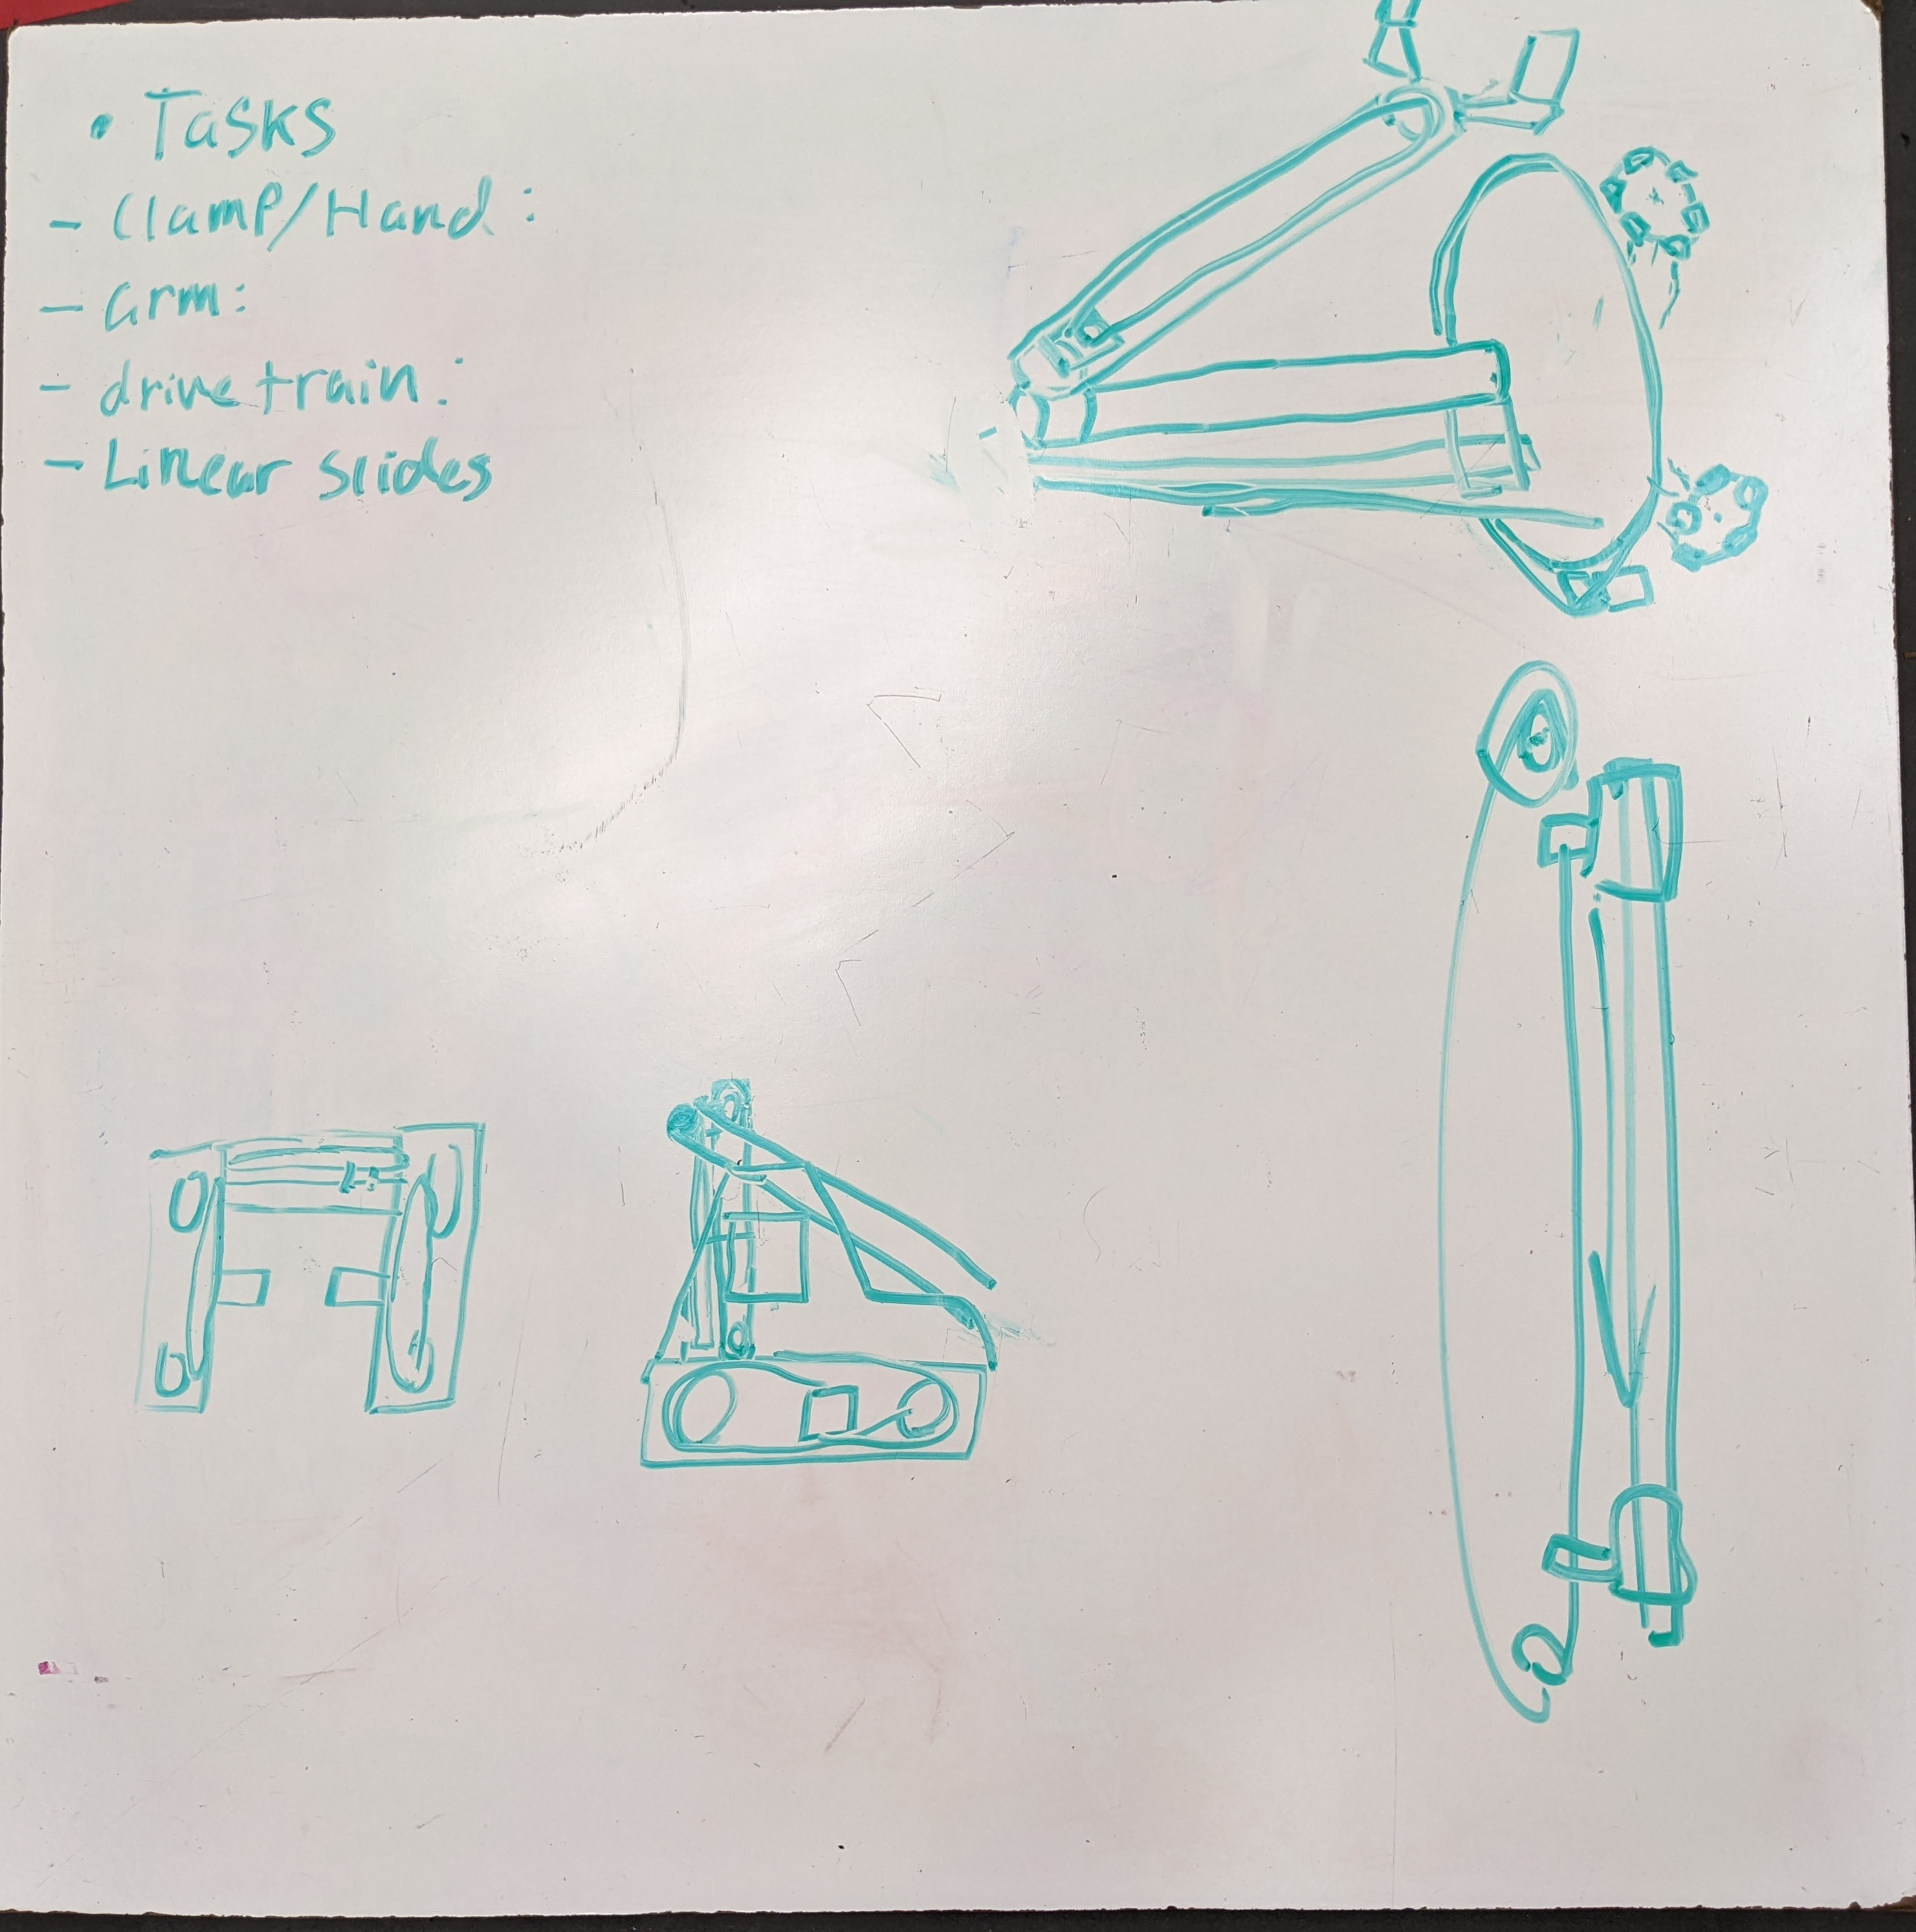 • Tasks
- Clamp/Hand:
- arm:
- drivetrain:
- Linear slides